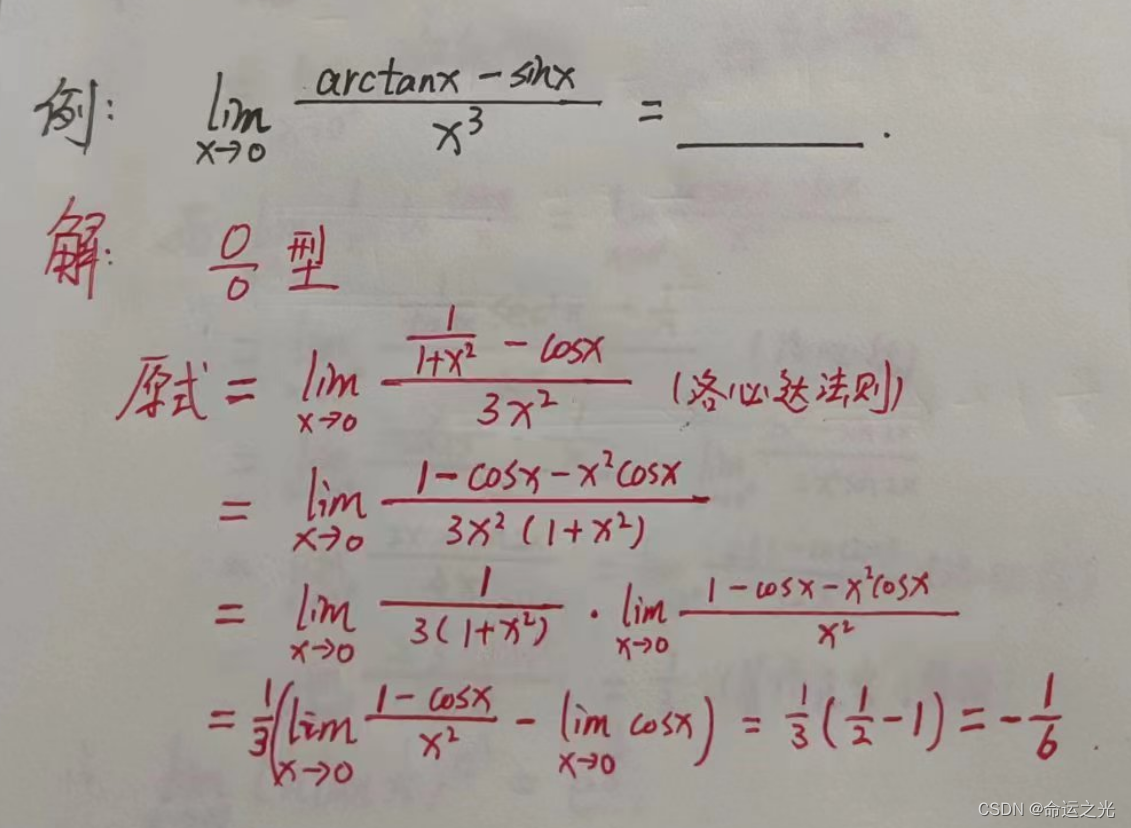 例: lim x→0 (arctanx - sinx)/x³ = ______ .
解: 0/0 型
原式 = lim x→0 (1/(1+x²) - cosx)/(3x²) (洛必达法则)
= lim x→0 (1-cosx-x²cosx)/(3x²(1+x²))
= lim x→0 1/(3(1+x²)) · lim x→0 (1-cosx-x²cosx)/x²
= 1/3 (lim x→0 (1-cosx)/x² - lim x→0 cosx) = 1/3 (1/2 - 1) = -1/6 .
CSDN @命运之光